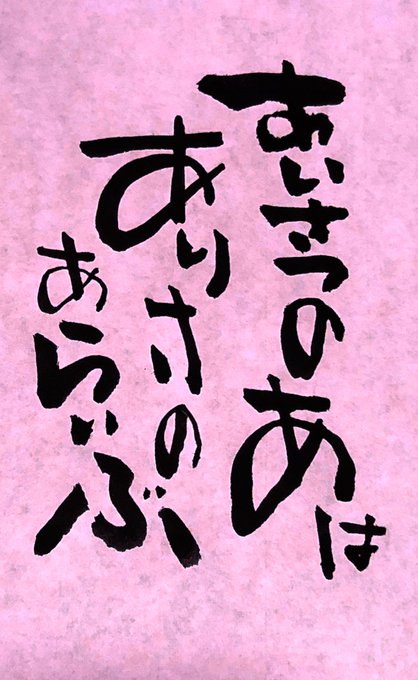 あいさつのあは
ありさの
あらいぶ